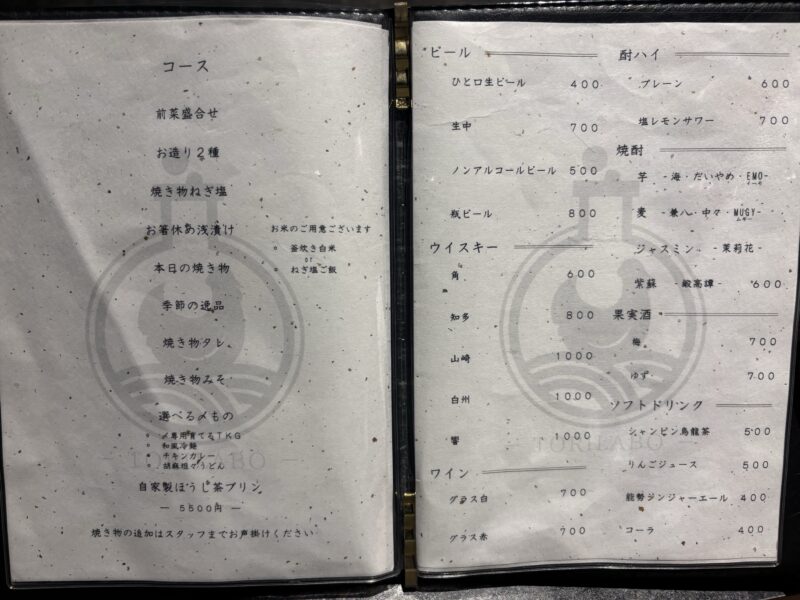 コース
前菜盛合せ
お造り2種
焼き物ねぎ塩
お箸休め浅漬け
お米のご用意ございます
。釜炊き白米
or
。ねぎ塩ご飯
本日の焼き物
季節の逸品
焼き物タレ
焼き物みそ
選べる〆もの
。〆専用育てるTKG
。和風冷麺
。チキンカレー
。胡麻担々うどん
自家製ほうじ茶プリン
― 5500円 ―
焼き物の追加はスタッフまでお声掛けください
TORILABO
ビール
ひと口生ビール 400
生中 700
ノンアルコールビール 500
瓶ビール 800
ウイスキー
角 600
知多 800
山崎 1000
白州 1000
響 1000
ワイン
グラス白 700
グラス赤 700
酎ハイ
プレーン 600
塩レモンサワー 700
焼酎
芋 -海・だいやめ・EMO-
イーモ
麦 -兼八・中々・MUGY-
ムギー
ジャスミン -茉莉花-
紫蘇 -鍛高譚- 600
果実酒
梅 700
ゆず 700
ソフトドリンク
ジャンピン烏龍茶 500
りんごジュース 500
能勢ジンジャーエール 400
コーラ 400
TORILABO